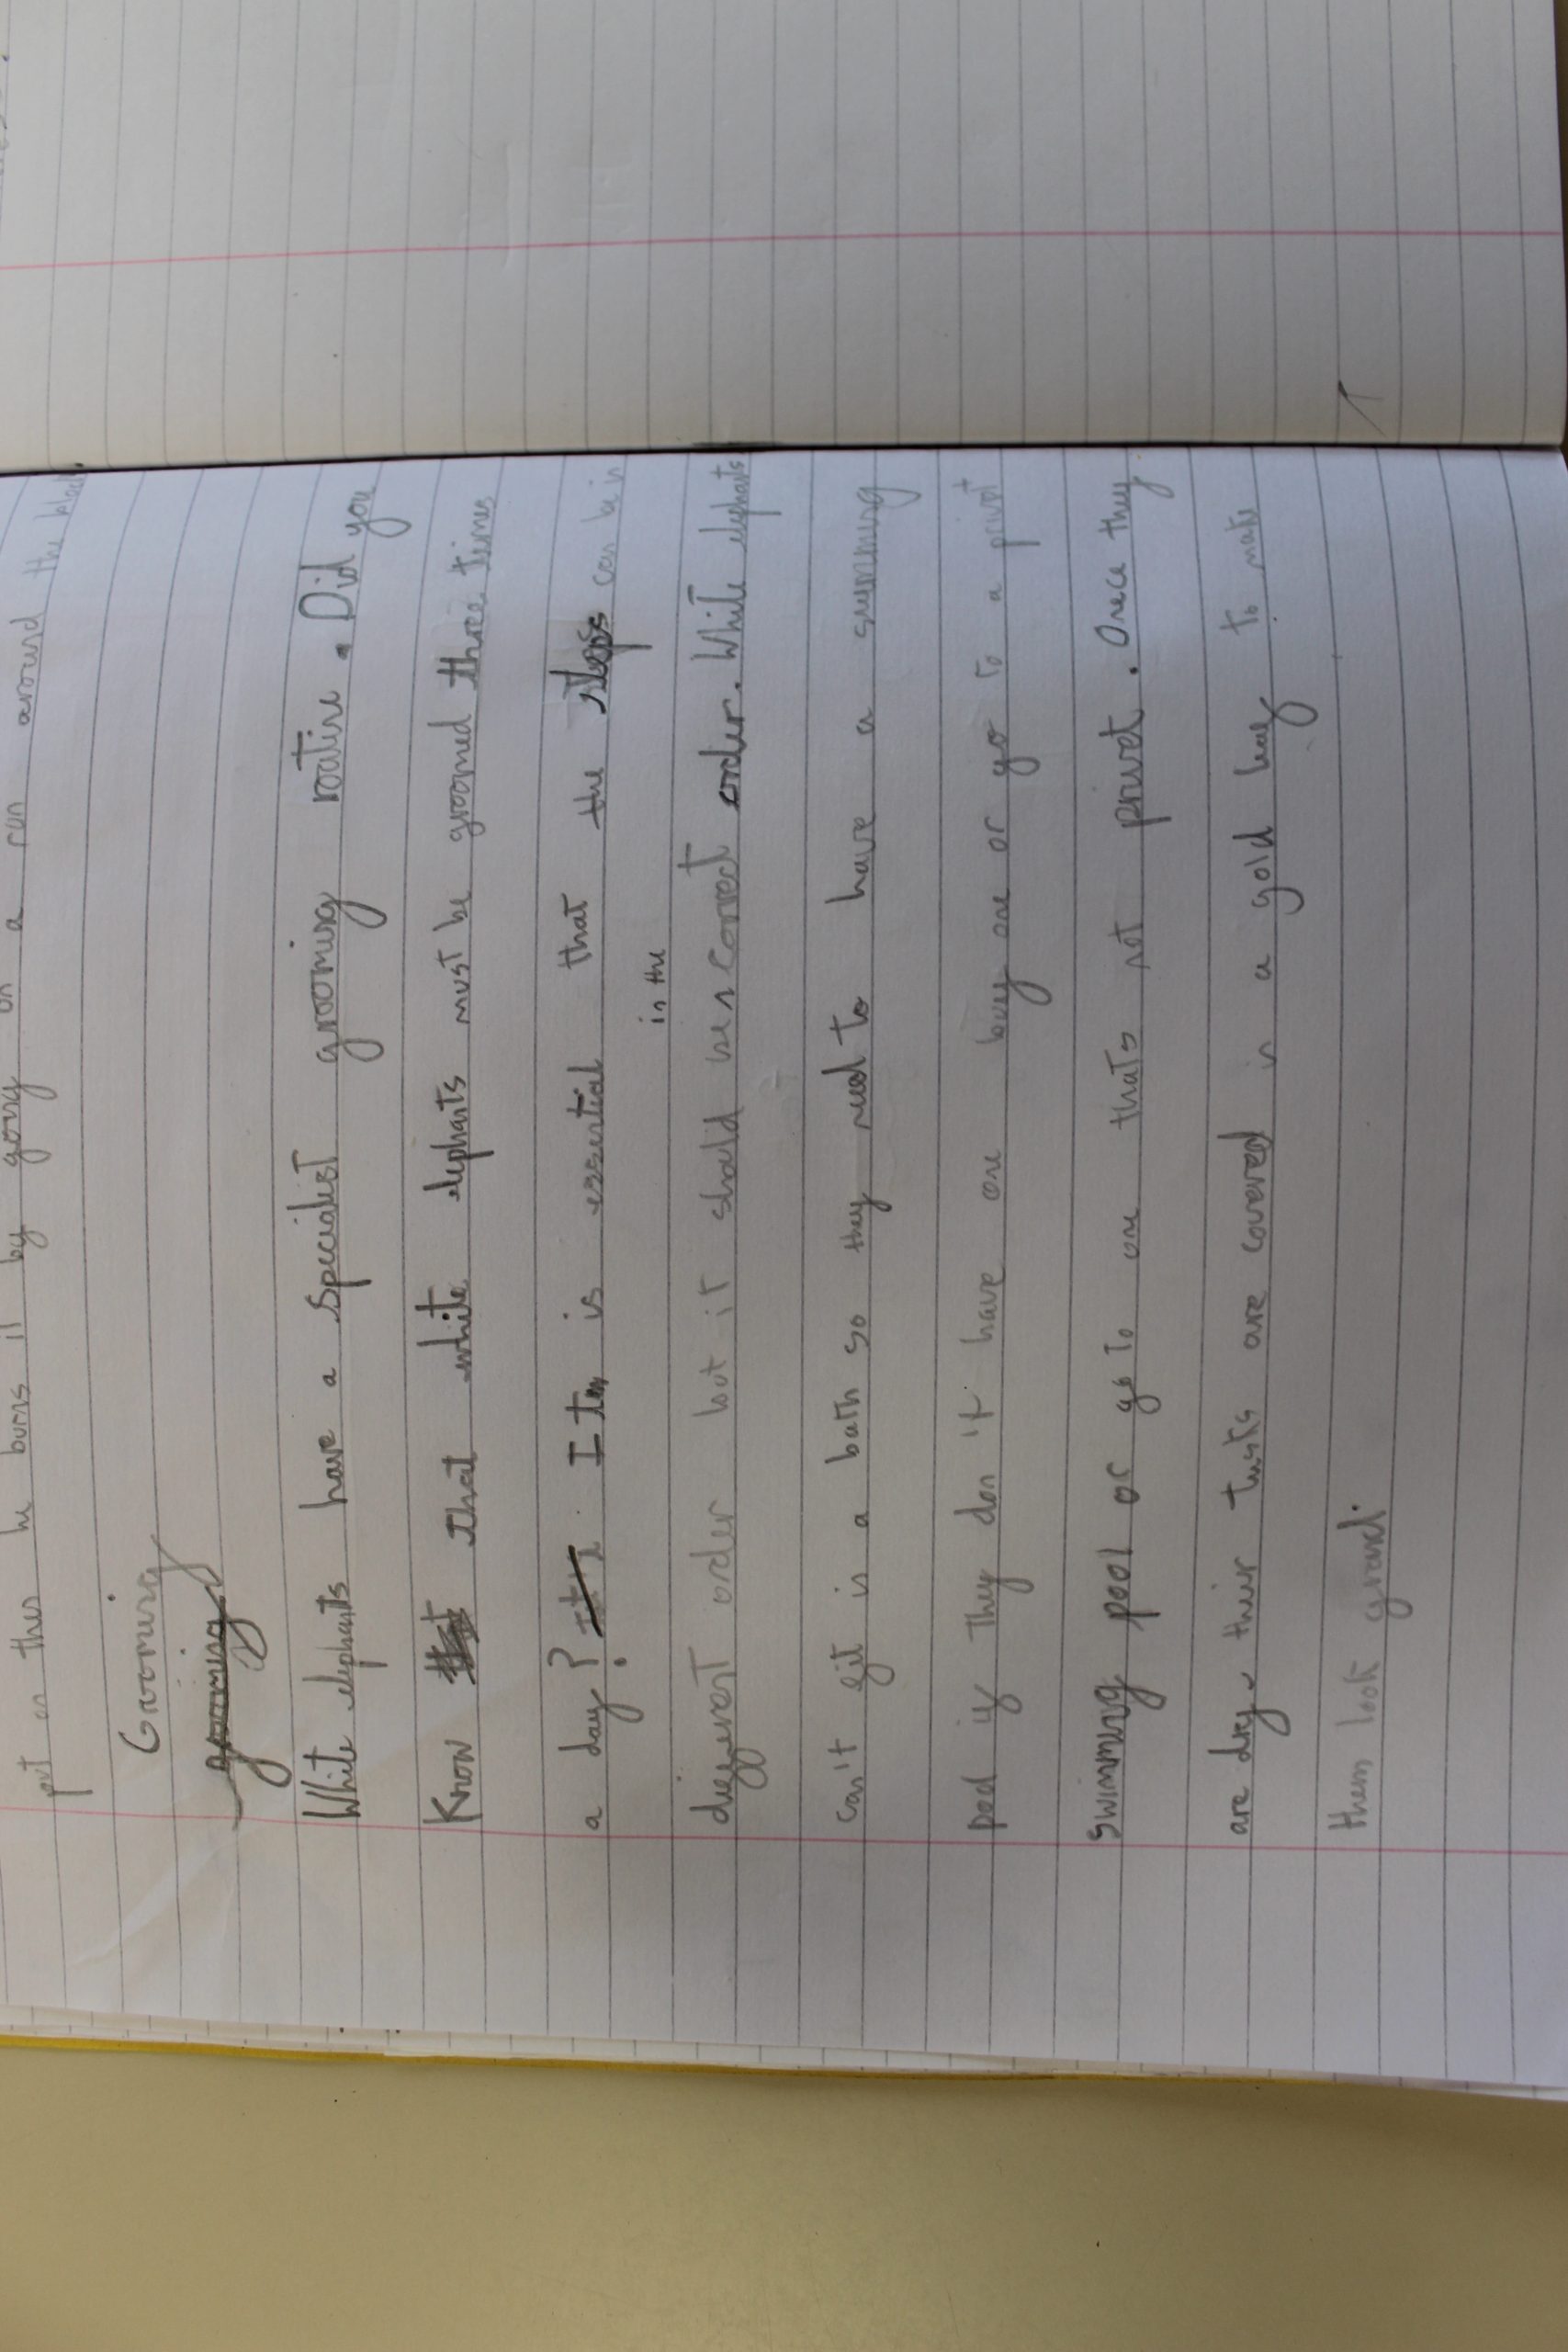 put on then he burns it by going on a run around the block.
Grooming
grooming
White elephants have a specialist grooming routine. Did you
Know that white elephants must be groomed three times
a day? It is essential that the steps can be in
in the
different order but it should be correct order. White elephants
can't fit in a bath so they need to have a swimming
pool if they don't have one buy one or go to a privat
swimming pool or go to one thats not privat. Once they
are dry, their tusks are covered in a gold leaf to make
them look grand.